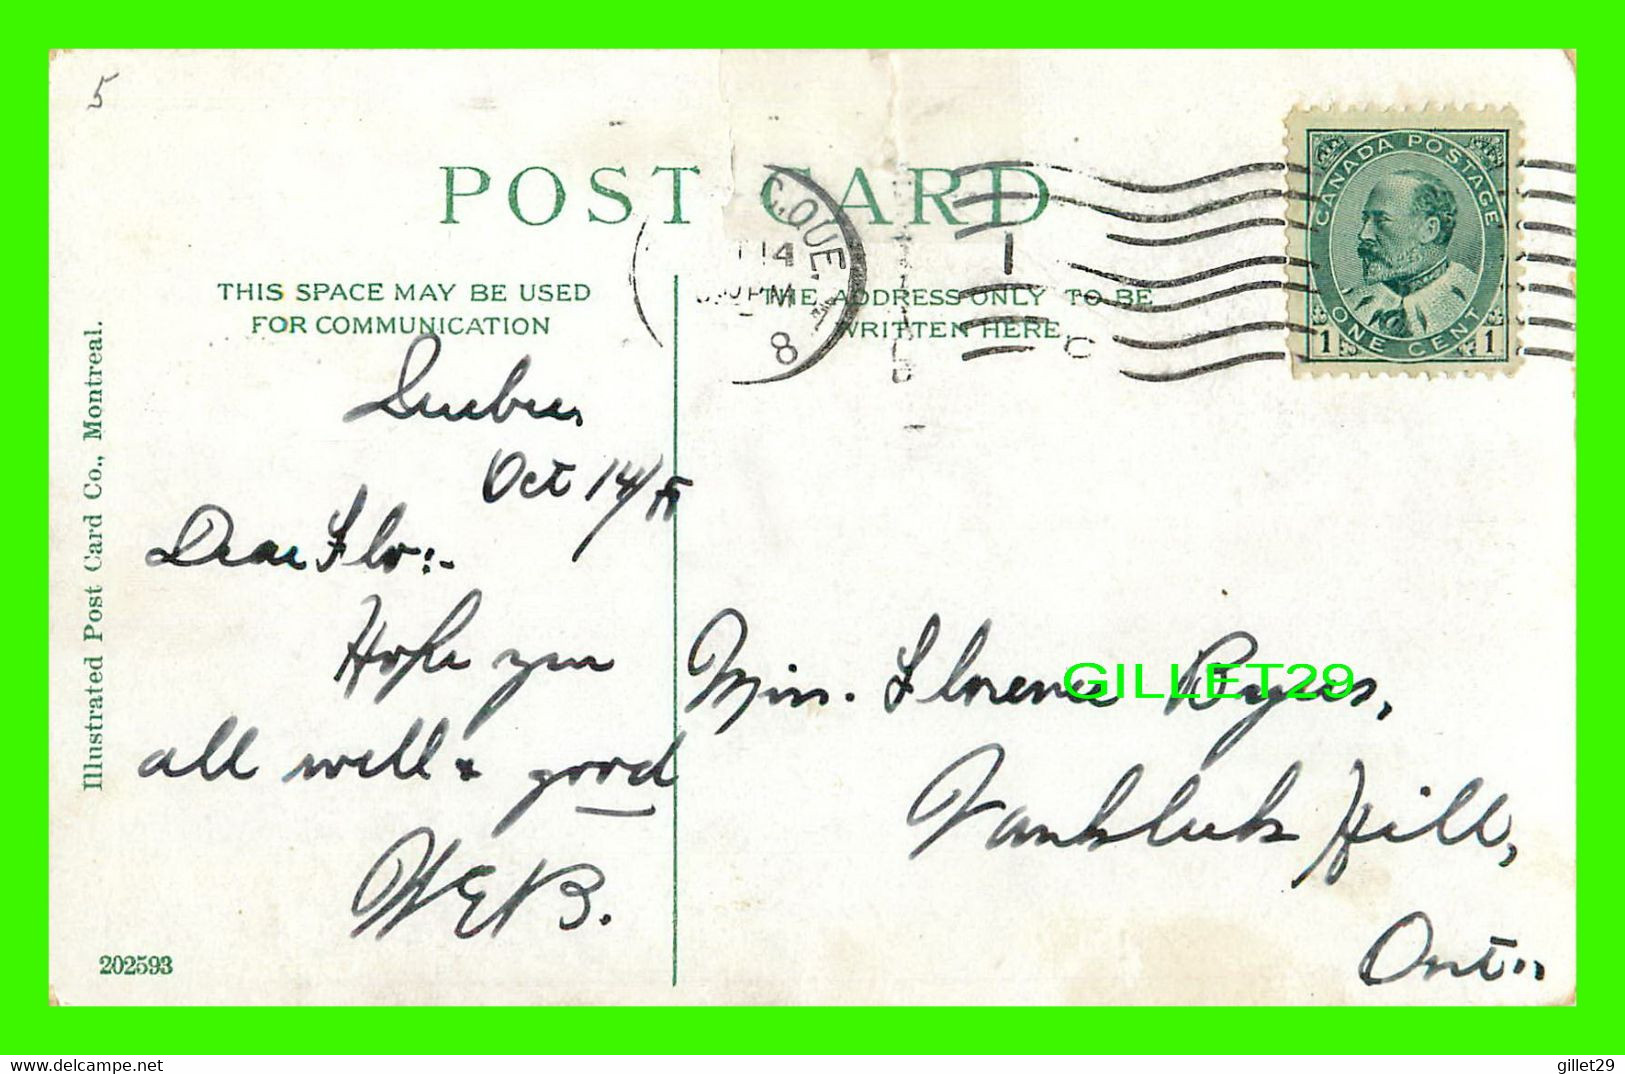 5
POST CARD
C. QUE.
14
PM
8
1
C
CANADA POSTAGE
1 ONE CENT 1
THIS SPACE MAY BE USED
FOR COMMUNICATION
THE ADDRESS ONLY TO BE
WRITTEN HERE
Illustrated Post Card Co., Montreal.
Oct 14/
Dear Flo:-
Hope you
all well & good
WEB.
Miss. Florence Byers,
Vankleek Hill,
Ont..
GILLET29
202593
delcampe.net
gillet29